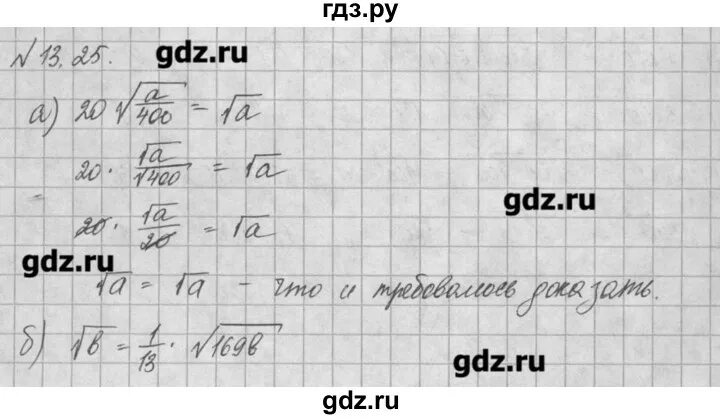 гдз.ру
№ 13.25. gdz.ru
а) 20 √(a/400) = √a
20 · √a/√400 = √a
gdz.ru
20 · √a/20 = √a
gdz.ru
√a = √a – что и требовалось доказать.
б) √b = 1/13 · √169b
gdz.ru
гдз.ру